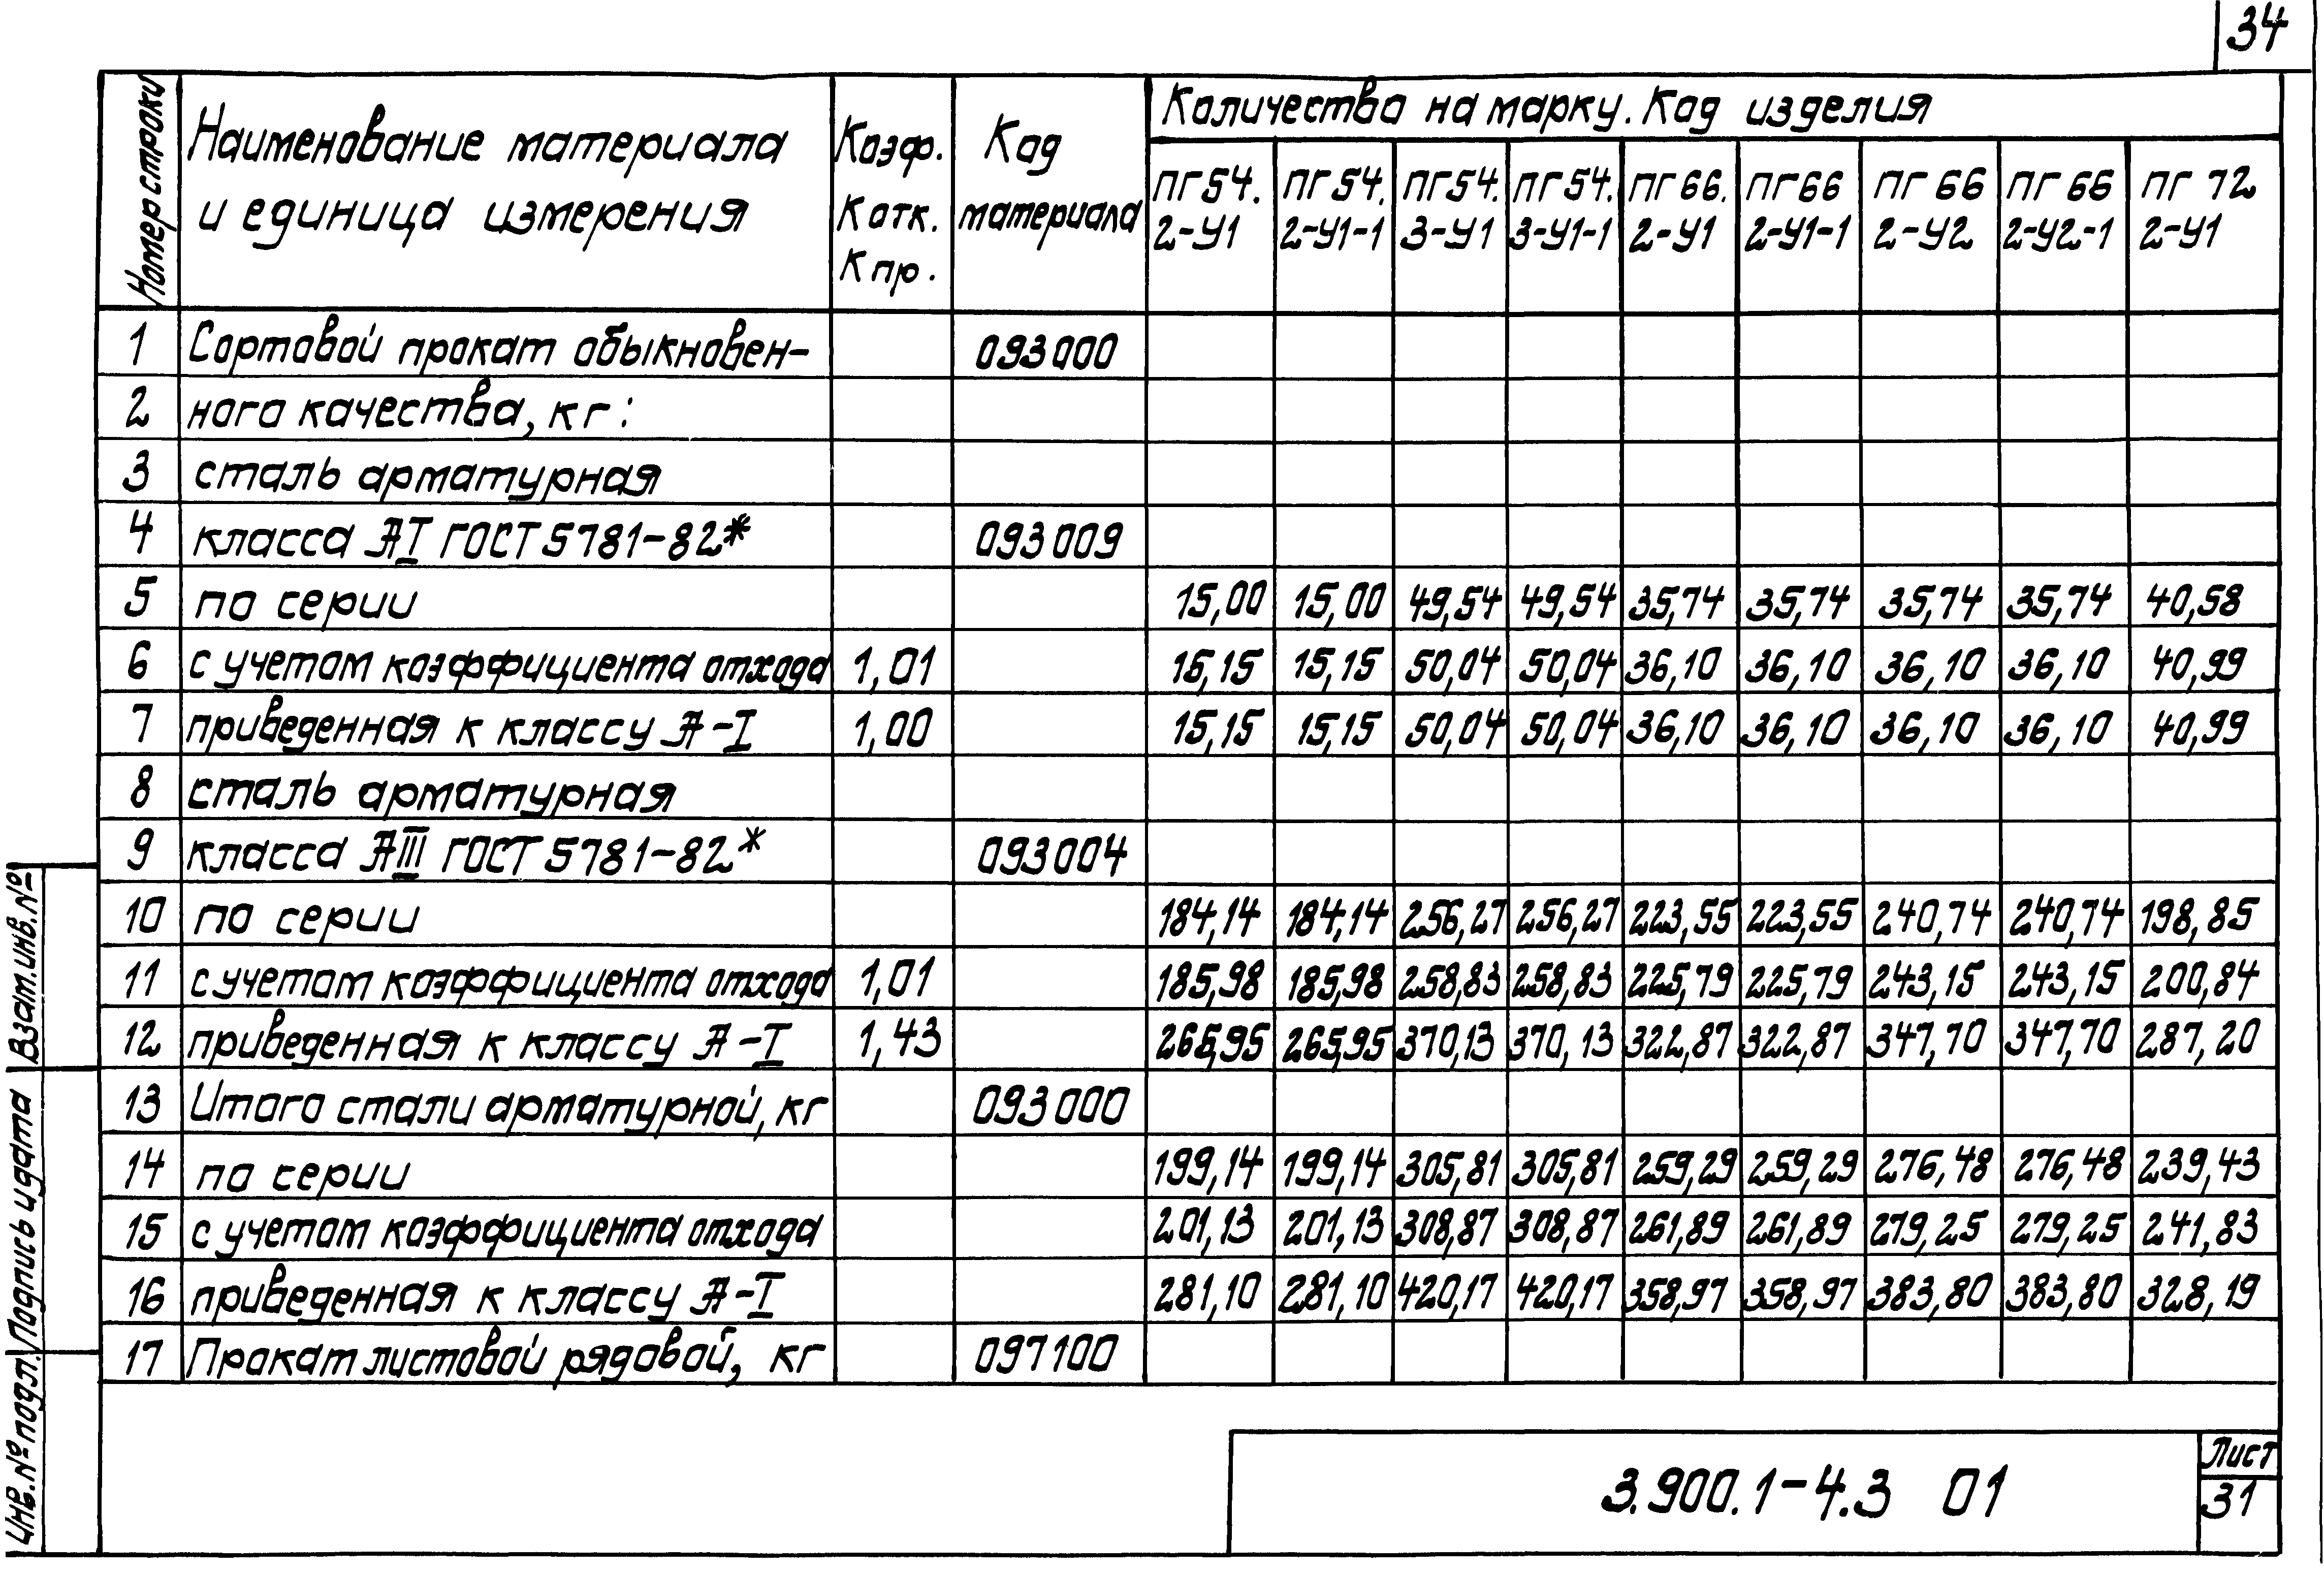 34
Номер строки
Наименование материала
и единица измерения
Коэф.
Котк.
Кпр.
Код
материала
Количество на марку. Код изделия
ПГ54. ПГ54. ПГ54. ПГ54. ПГ66. ПГ66 ПГ66 ПГ66 ПГ72
2-У1 2-У1-1 3-У1 3-У1-1 2-У1 2-У1-1 2-У2 2-У2-1 2-У1
1 Сортовой прокат обыкновен- 093000
2 ного качества, кг:
3 сталь арматурная
4 класса АI ГОСТ 5781-82* 093009
5 по серии 15,00 15,00 49,54 49,54 35,74 35,74 35,74 35,74 40,58
6 с учетом коэффициента отхода 1,01 15,15 15,15 50,04 50,04 36,10 36,10 36,10 36,10 40,99
7 приведенная к классу А-I 1,00 15,15 15,15 50,04 50,04 36,10 36,10 36,10 36,10 40,99
8 сталь арматурная
9 класса АIII ГОСТ 5781-82* 093004
10 по серии 184,14 184,14 256,27 256,27 223,55 223,55 240,74 240,74 198,85
11 с учетом коэффициента отхода 1,01 185,98 185,98 258,83 258,83 225,79 225,79 243,15 243,15 200,84
12 приведенная к классу А-I 1,43 265,95 265,95 370,13 370,13 322,87 322,87 347,70 347,70 287,20
13 Итого стали арматурной, кг 093000
14 по серии 199,14 199,14 305,81 305,81 259,29 259,29 276,48 276,48 239,43
15 с учетом коэффициента отхода 201,13 201,13 308,87 308,87 261,89 261,89 279,25 279,25 241,83
16 приведенная к классу А-I 281,10 281,10 420,17 420,17 358,97 358,97 383,80 383,80 328,19
17 Прокат листовой рядовой, кг 097100
Взам.инв.№
Подпись и дата
Инв.№ подл.
3.900.1-4.3 01
Лист
31